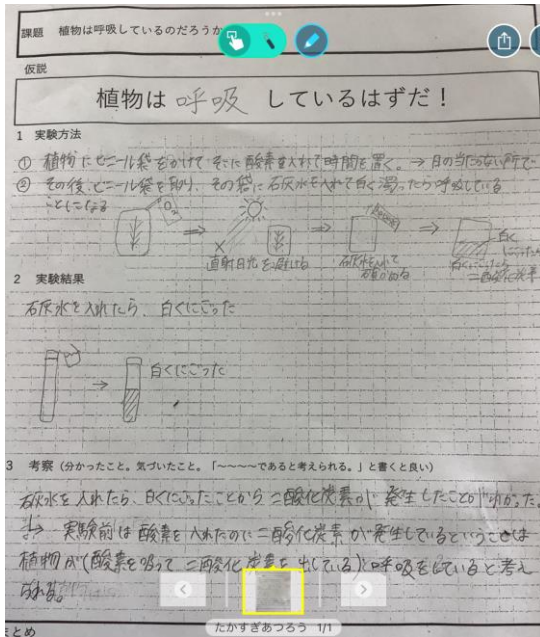 課題 植物は呼吸しているのだろうか
仮説
植物は 呼吸 しているはずだ！
1 実験方法
① 植物にビニール袋をかけて そこに酸素を入れて時間を置く。→ 日の当たらない所で
② その後、ビニール袋を取り、その袋に石灰水を入れて白く濁ったら呼吸している
ことになる
O2
直射日光を避ける
石灰水を入れて
白く
にごった
白くにごったら
二酸化炭素
2 実験結果
石灰水を入れたら、白くにごった
白くにごった
3 考察（分かったこと。気づいたこと。「～～～～であると考えられる。」と書くと良い）
石灰水を入れたら、白くにごったことから二酸化炭素が発生したことが分かった。
→ 実験前は酸素を入れたのに二酸化炭素が発生しているということは
植物が(酸素を吸って二酸化炭素を出している)呼吸をしていると考え
られる。
まとめ
たかすぎあつろう 1/1